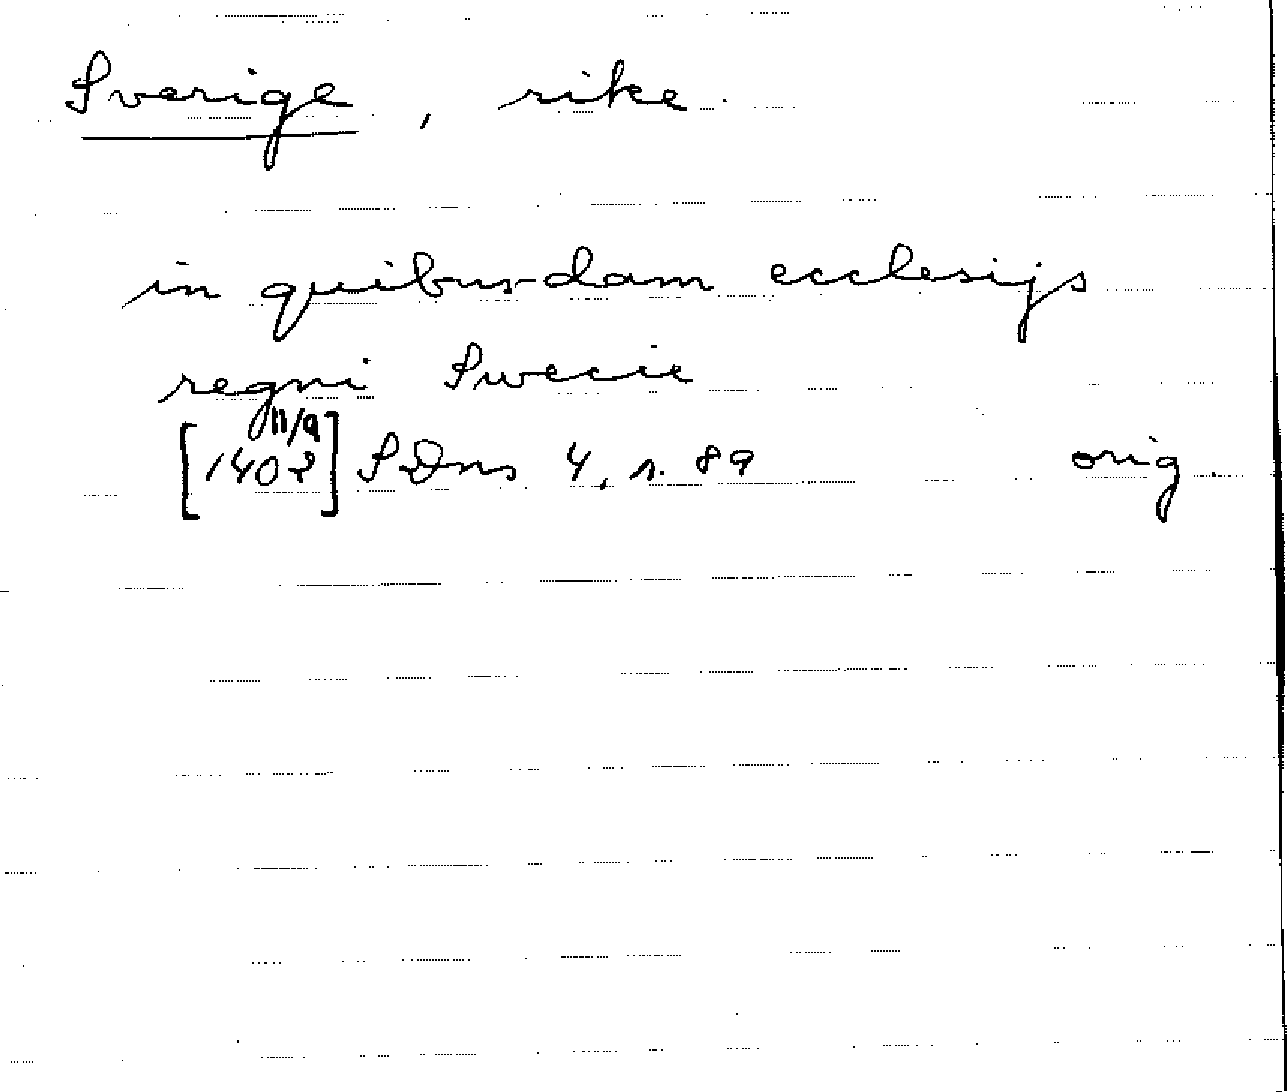 Sverige, rike
in quibusdam ecclesijs
regni Swecie
11/9
[1402] SDns 4, s. 89 orig.